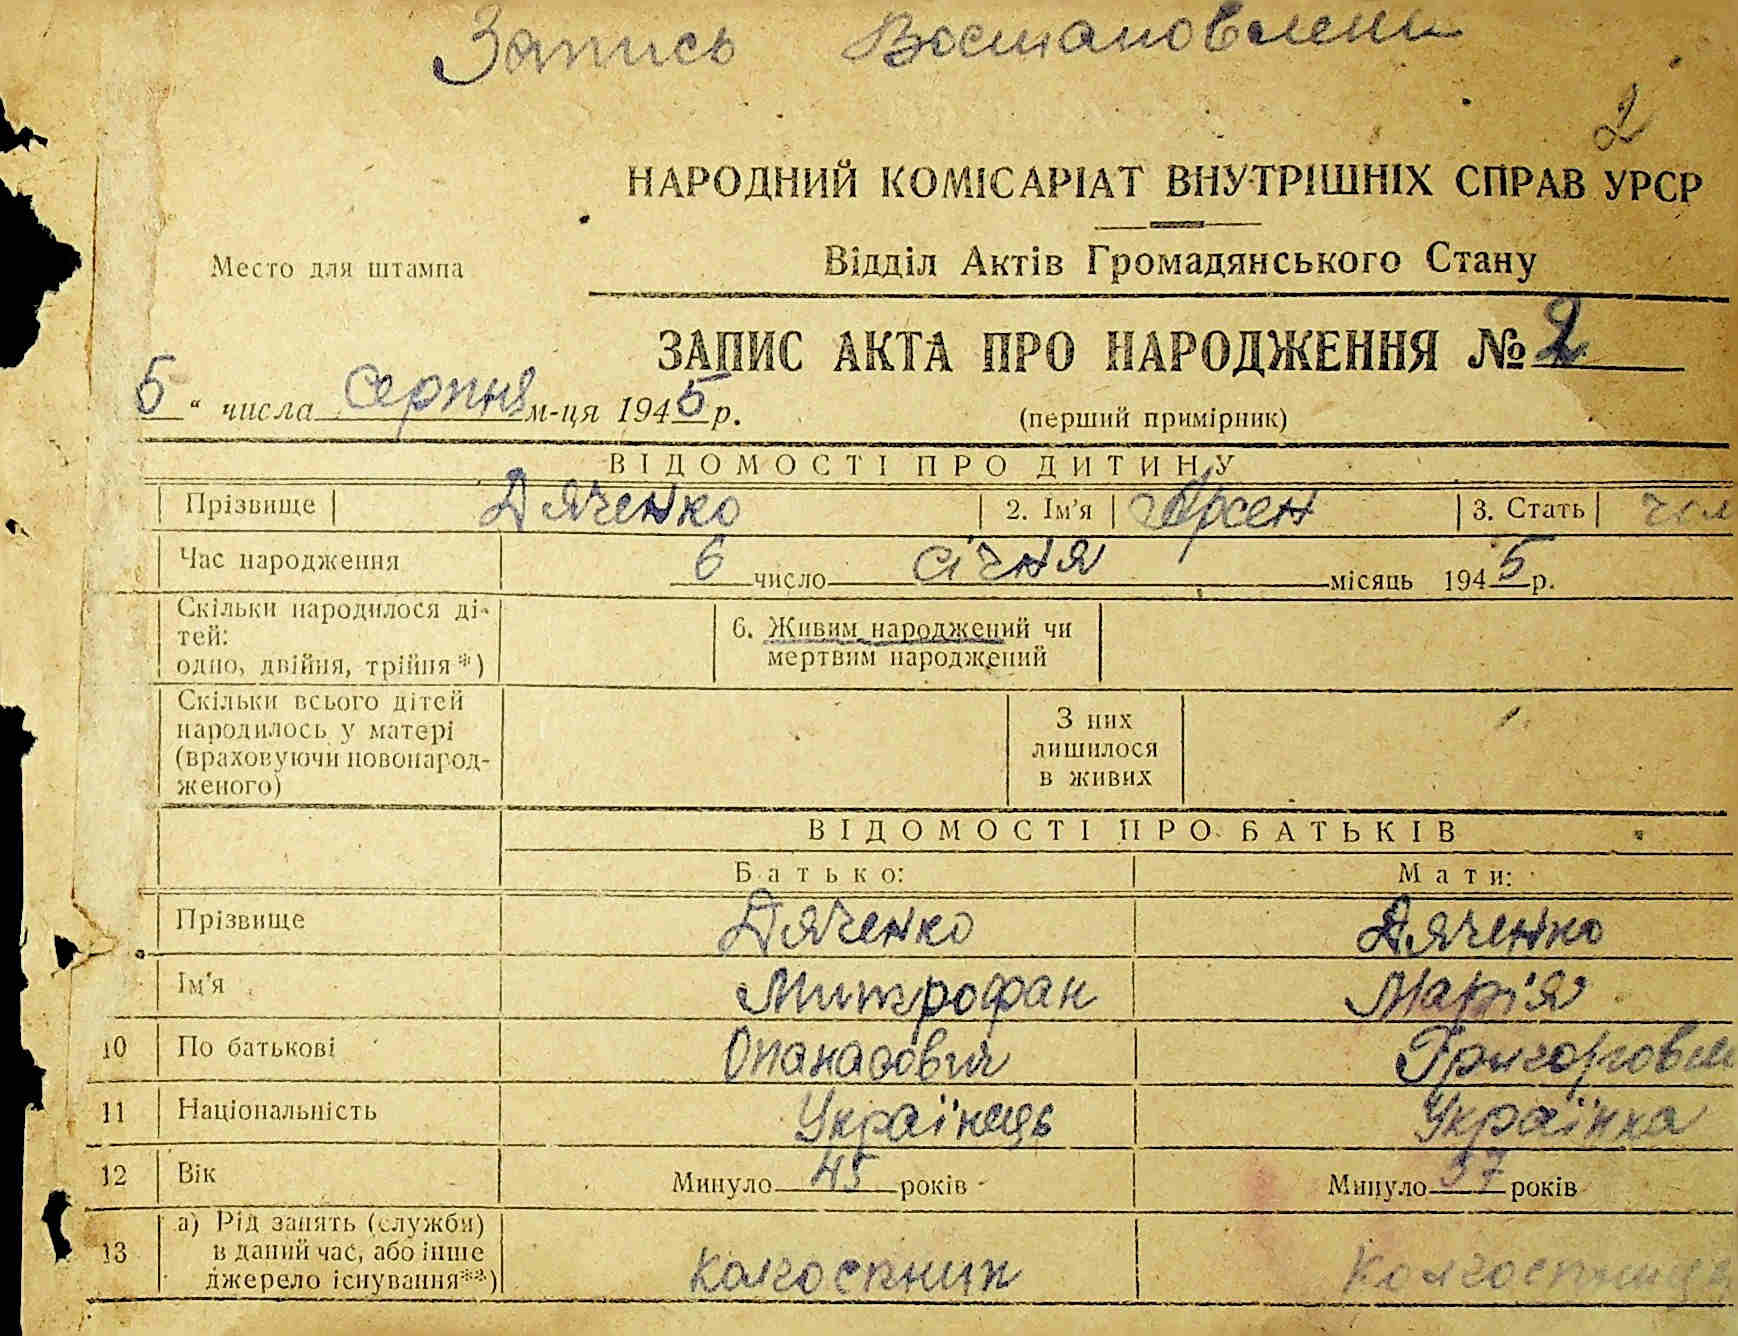 Запись Востановлени
2
НАРОДНИЙ КОМІСАРІАТ ВНУТРІШНІХ СПРАВ УРСР
Место для штампа
Відділ Актів Громадянського Стану
ЗАПИС АКТА ПРО НАРОДЖЕННЯ № 2
5 " числа серпня м-ця 1945 р.
(перший примірник)
ВІДОМОСТІ ПРО ДИТИНУ
Прізвище Дяченко 2. Ім'я Арсен 3. Стать чол
Час народження 6 число січня місяць 1945 р.
Скільки народилося ді-
тей:
одно, двійня, трійня*)
6. Живим народжений чи
мертвим народжений
Скільки всього дітей
народилось у матері
(враховуючи новонарод-
женого)
З них
лишилося
в живих
ВІДОМОСТІ ПРО БАТЬКІВ
Батько: Мати:
Прізвище Дяченко Дяченко
Ім'я Митрофан Марія
10 По батькові Опанасович Григоровн
11 Національність Українець Українка
12 Вік Минуло 45 років Минуло 37 років
13 а) Рід занять (служби)
в даний час, або інше
джерело існування**)
колгоспник колгоспниця